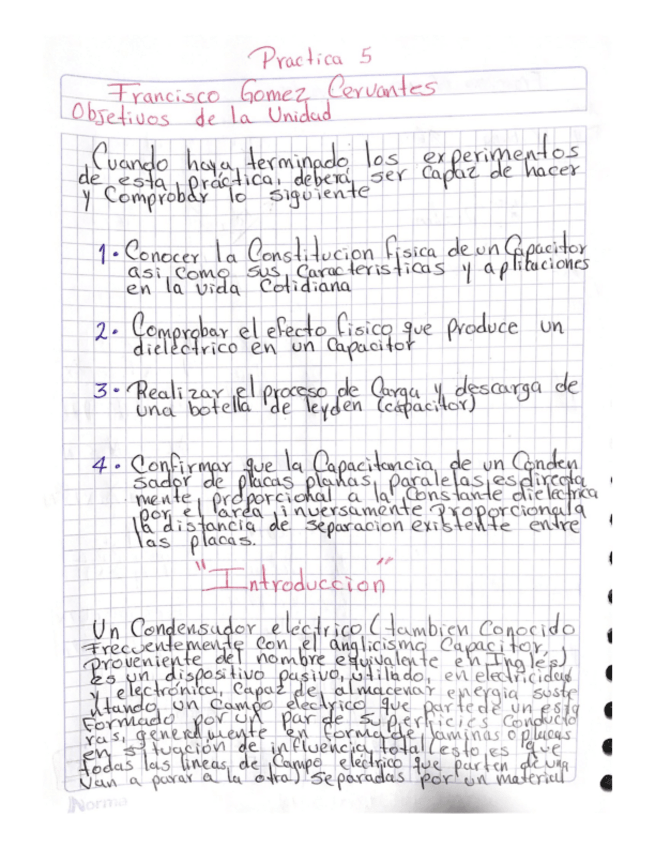 Practica 5
Francisco Gomez Cervantes
Objetivos de la Unidad
Cuando haya terminado los experimentos
de esta práctica, deberá ser capaz de hacer
y Comprobar lo siguiente
1. Conocer la Constitucion fisica de un Capacitor
asi como sus Caracteristicas y aplicaciones
en la vida Cotidiana
2. Comprobar el efecto fisico que produce un
dieléctrico en un Capacitor
3. Realizar el proceso de Carga y descarga de
una botella de leyden (capacitor)
4. Confirmar que la Capacitancia de un Conden
sador de placas planas paralelas es directa
mente proporcional a la Constante dielectrica
por el area, inversamente proporcional a
la distancia de separacion existente entre
las placas.
"Introduccion"
Un Condensador eléctrico (tambien Conocido
Frecuentemente con el anglicismo Capacitor,
proveniente del nombre equivalente en Ingles)
es un dispositivo pasivo, utilado, en electricidad
y electrónica, Capaz de almacenar energia suste
ntando un Campo electrico que parte de un esta
Formado por un par de superficies Conducto
ras, generalmente en forma de laminas o placas
en situación de influencia total (esto es que
todas las lineas de Campo eléctrico que parten de una
van a parar a la otra) separadas por un material
Norma